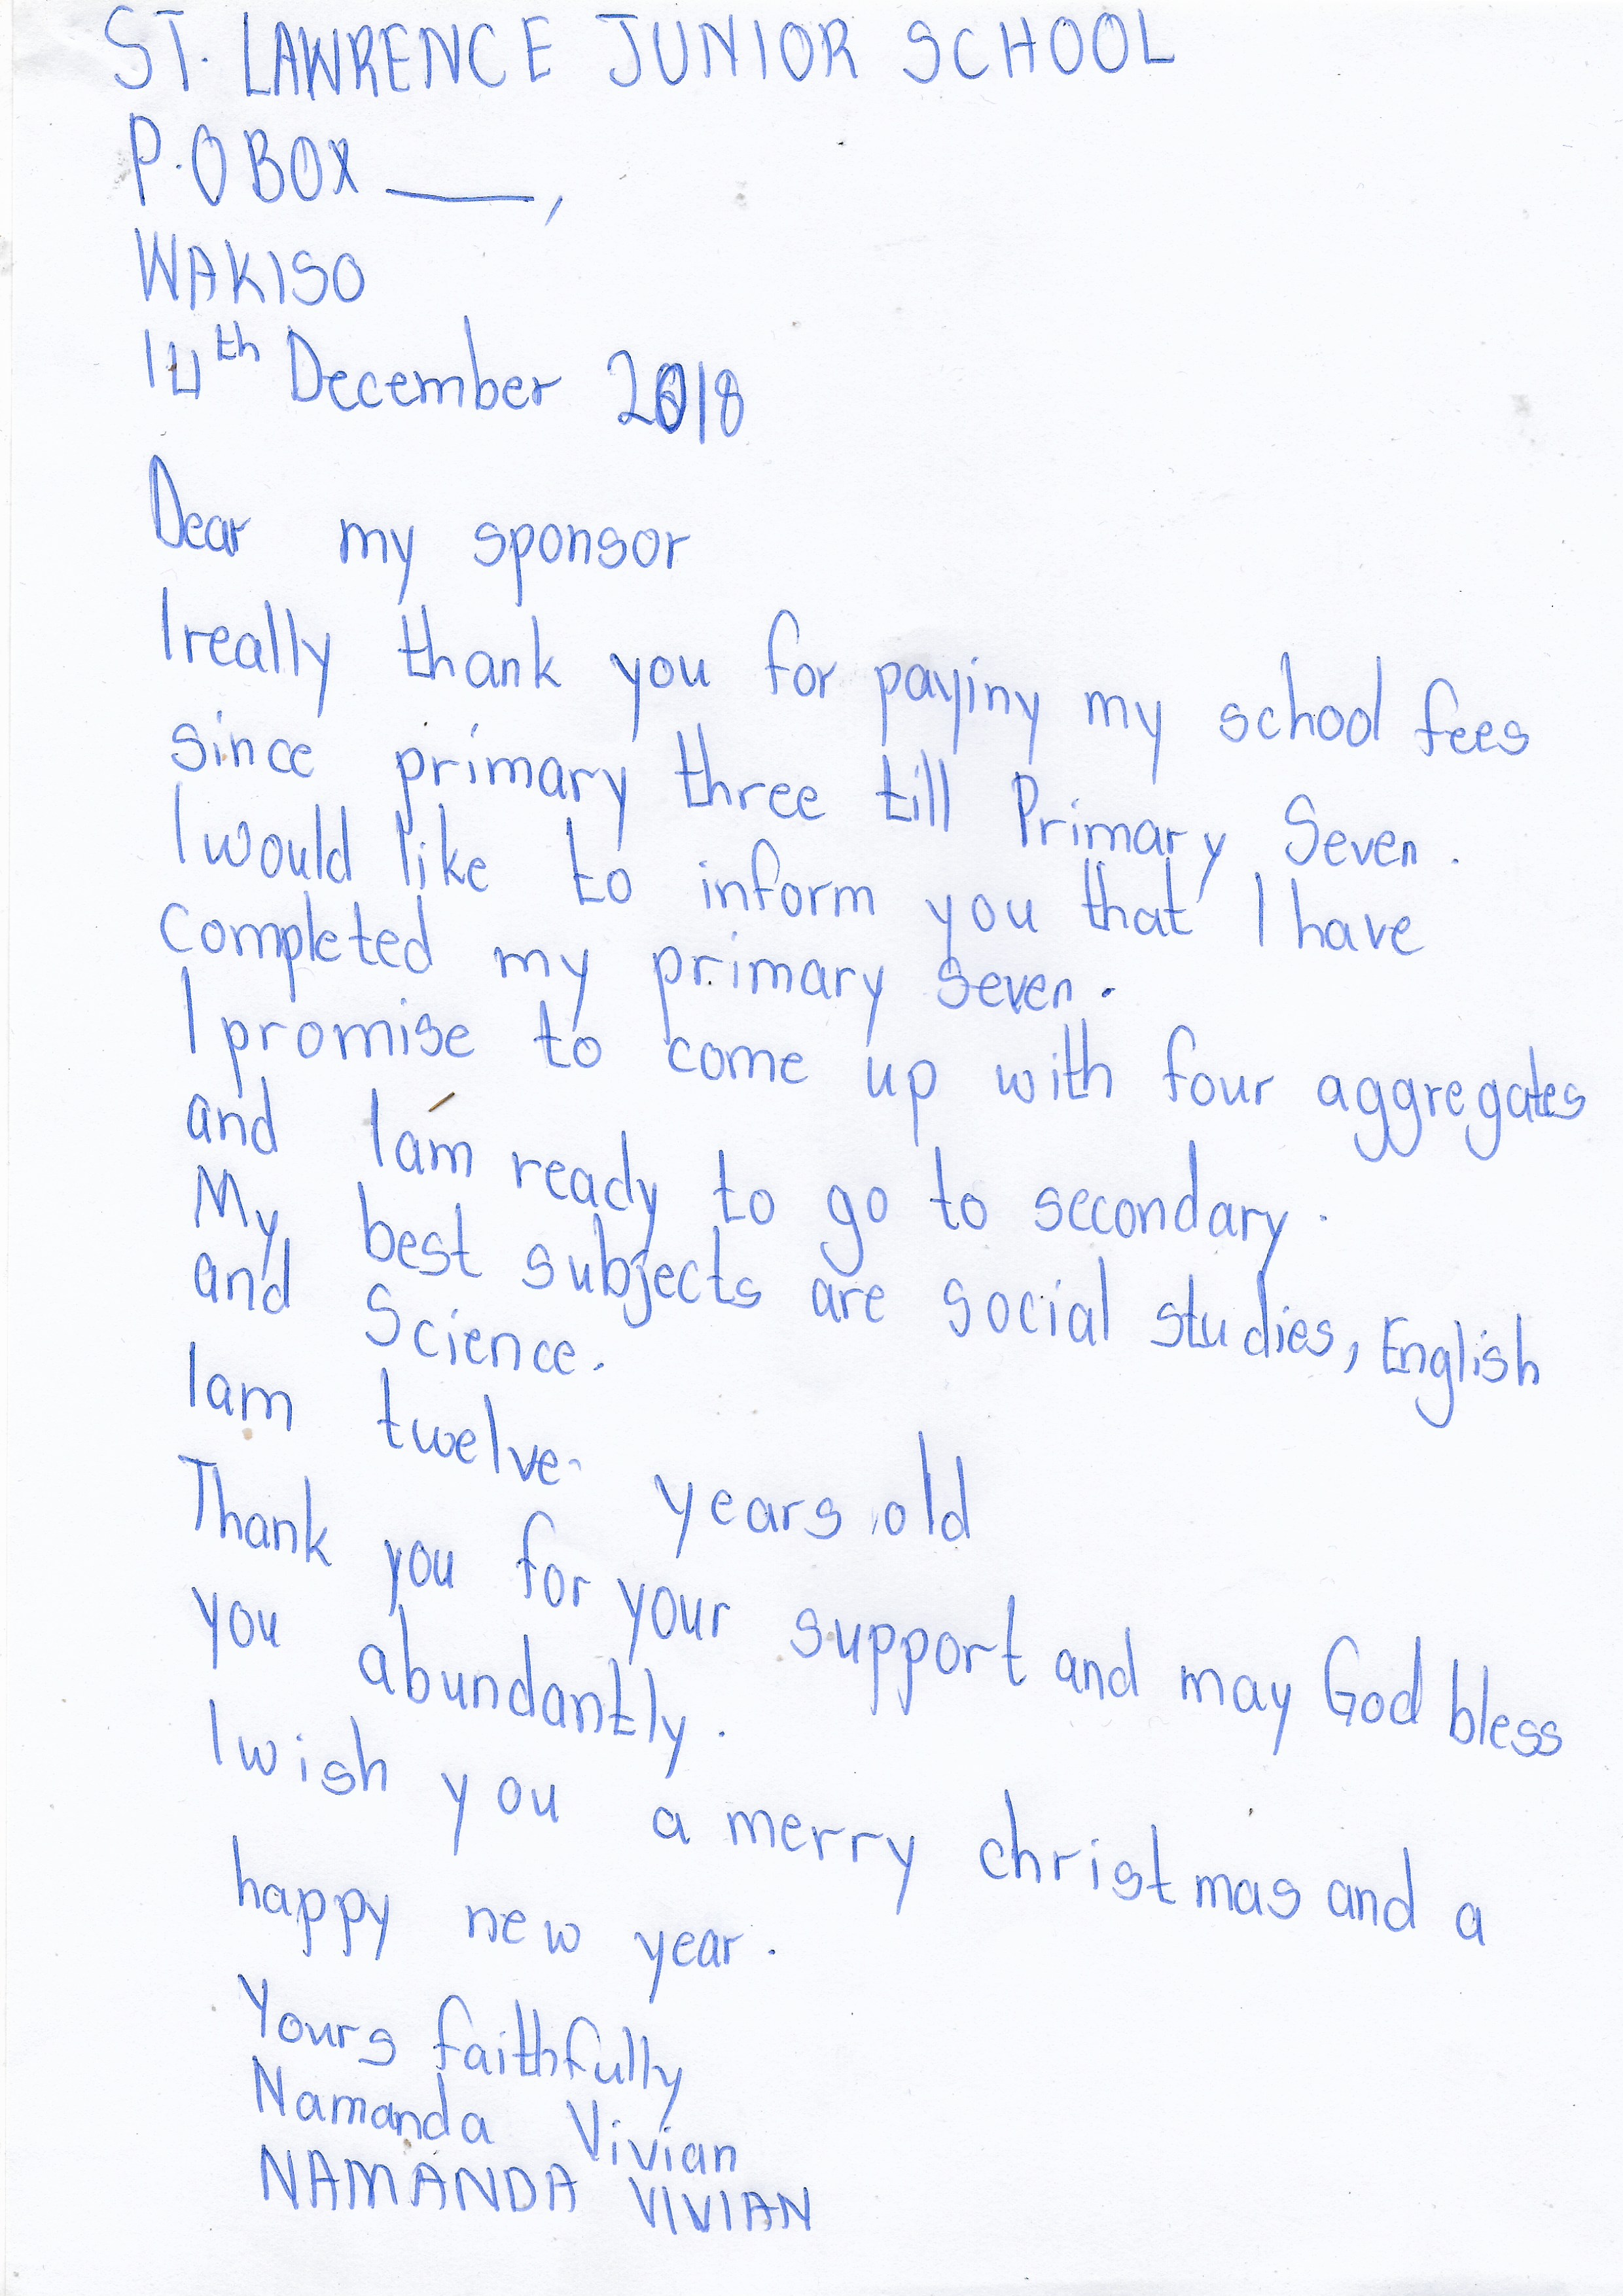 ST. LAWRENCE JUNIOR SCHOOL
P.O BOX ____,
WAKISO
14th December 2018
Dear my sponsor
I really thank you for paying my school fees
since primary three till Primary Seven.
I would like to inform you that I have
completed my primary seven.
I promise to come up with four aggregates
and I am ready to go to secondary.
My best subjects are social studies, English
and Science.
I am twelve years old
Thank you for your support and may God bless
you abundantly.
I wish you a merry christmas and a
happy new year.
Yours faithfully
Namanda Vivian
NAMANDA VIVIAN